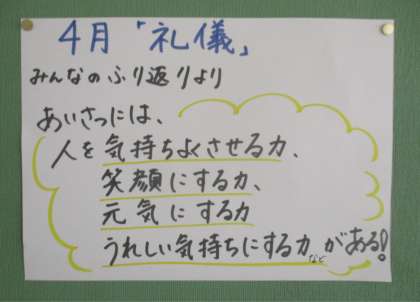 4月「礼儀」
みんなのふり返りより
あいさつには、
人を気持ちよくさせる力、
笑顔にする力、
元気にする力
うれしい気持ちにする力などがある！